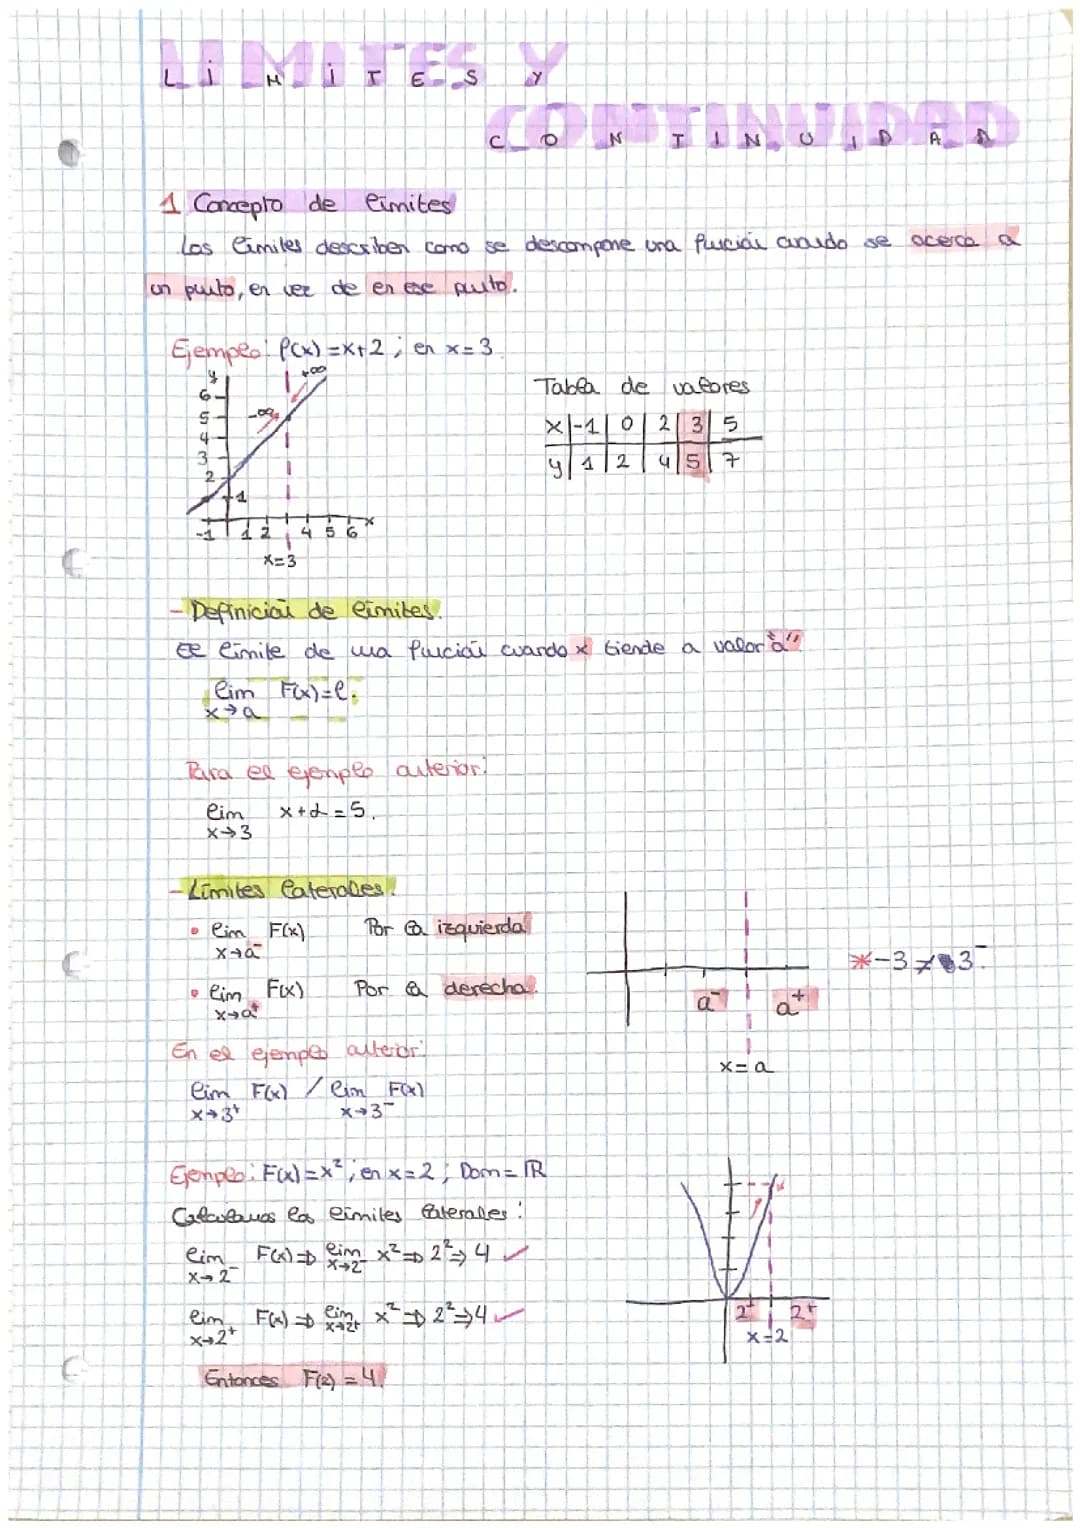 LÍMITES Y
CONTINUIDAD
1 Concepto de límites
Los límites describen como se descompone una función cuando se acerca a
un punto, en vez de en ese punto.
Ejemplo: f(x) = x+2 ; en x=3
y
+∞
-∞
6
5
4
3
2
1
-1 1 2 4 5 6 x
x=3
Tabla de valores
x | -1 | 0 | 2 | 3 | 5
y | 1 | 2 | 4 | 5 | 7
- Definición de límites.
El límite de una función cuando x tiende a valor "a"
lim F(x)=l.
x→a
Para el ejemplo anterior:
lim x+2=5.
x→3
- Límites laterales:
• lim F(x) Por la izquierda
x→a⁻
• lim F(x) Por la derecha.
x→a⁺
a⁻ a⁺
x=a
*-3 ≠ 3⁻.
En el ejemplo anterior:
lim F(x) / lim F(x)
x→3⁺ x→3⁻
Ejemplo: F(x)=x² ; en x=2 ; Dom=ℝ
Calculamos los límites laterales:
lim F(x) ⇒ lim x² ⇒ 2² ⇒ 4 ✓
x→2⁻ x→2⁻
lim F(x) ⇒ lim x² ⇒ 2² ⇒ 4 ✓
x→2⁺ x→2⁺
Entonces F(2) = 4.
2⁺ 2⁺
x=2